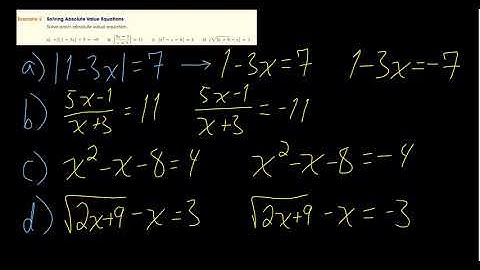 Example 4 Solving Absolute Value Equations
Solve each absolute value equation.
a) |1-3x|=7 → 1-3x=7 1-3x=-7
b) \frac{5x-1}{x+3}=11 \frac{5x-1}{x+3}=-11
c) x²-x-8=4 x²-x-8=-4
d) √(2x+9)-x=3 √(2x+9)-x=-3